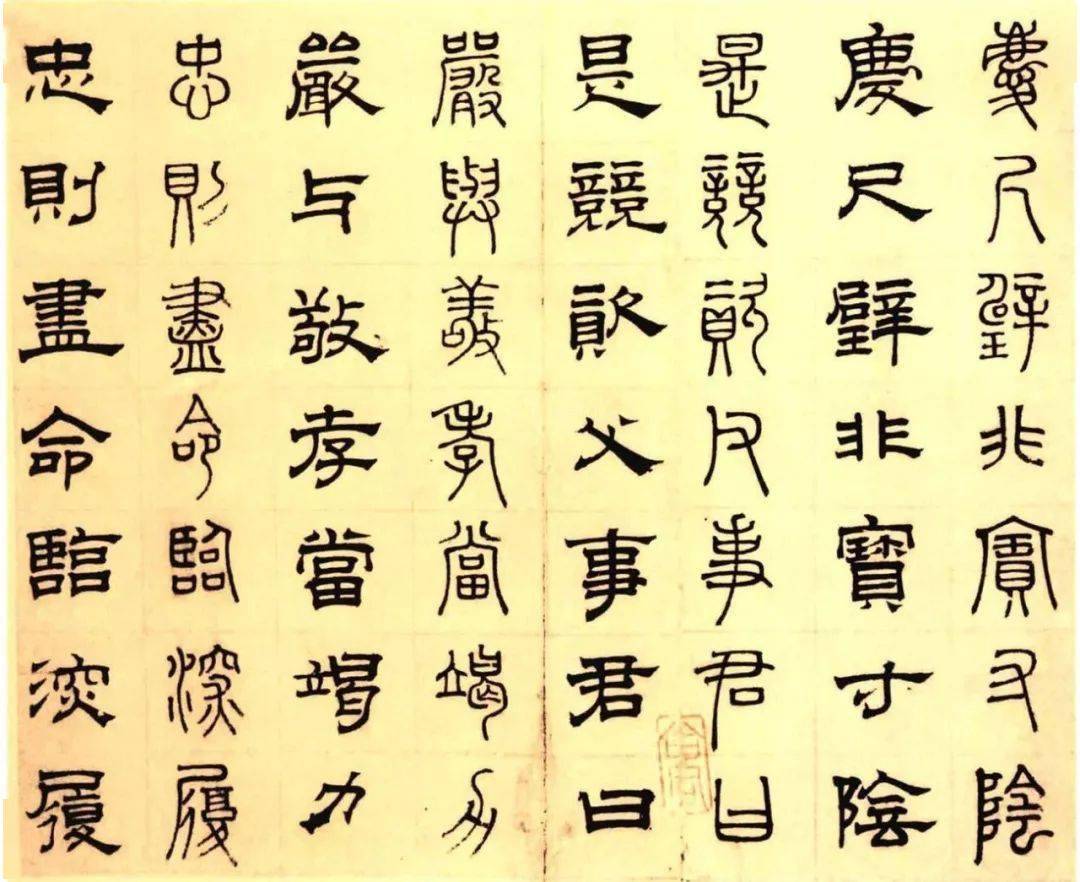 慶尺璧非寶寸陰
慶尺璧非寶寸陰
是競資父事君曰
是競資父事君曰
嚴與敬孝當竭力
嚴与敬孝當竭力
忠則盡命臨深履
忠則盡命臨深履